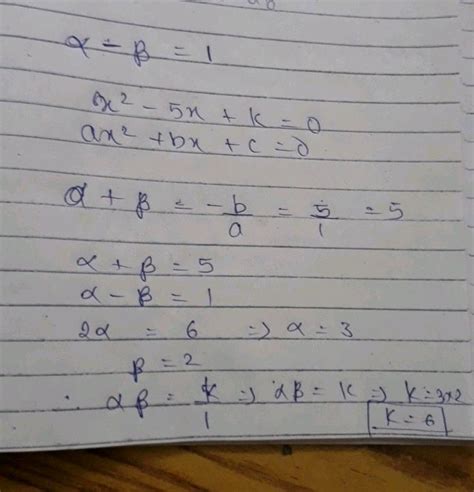 α - β = 1
x² - 5x + k = 0
ax² + bx + c = 0
α + β = -b/a = 5/1 = 5
α + β = 5
α - β = 1
2α = 6 => α = 3
β = 2
∴ αβ = k/1 => αβ = K => K = 3x2
K = 6